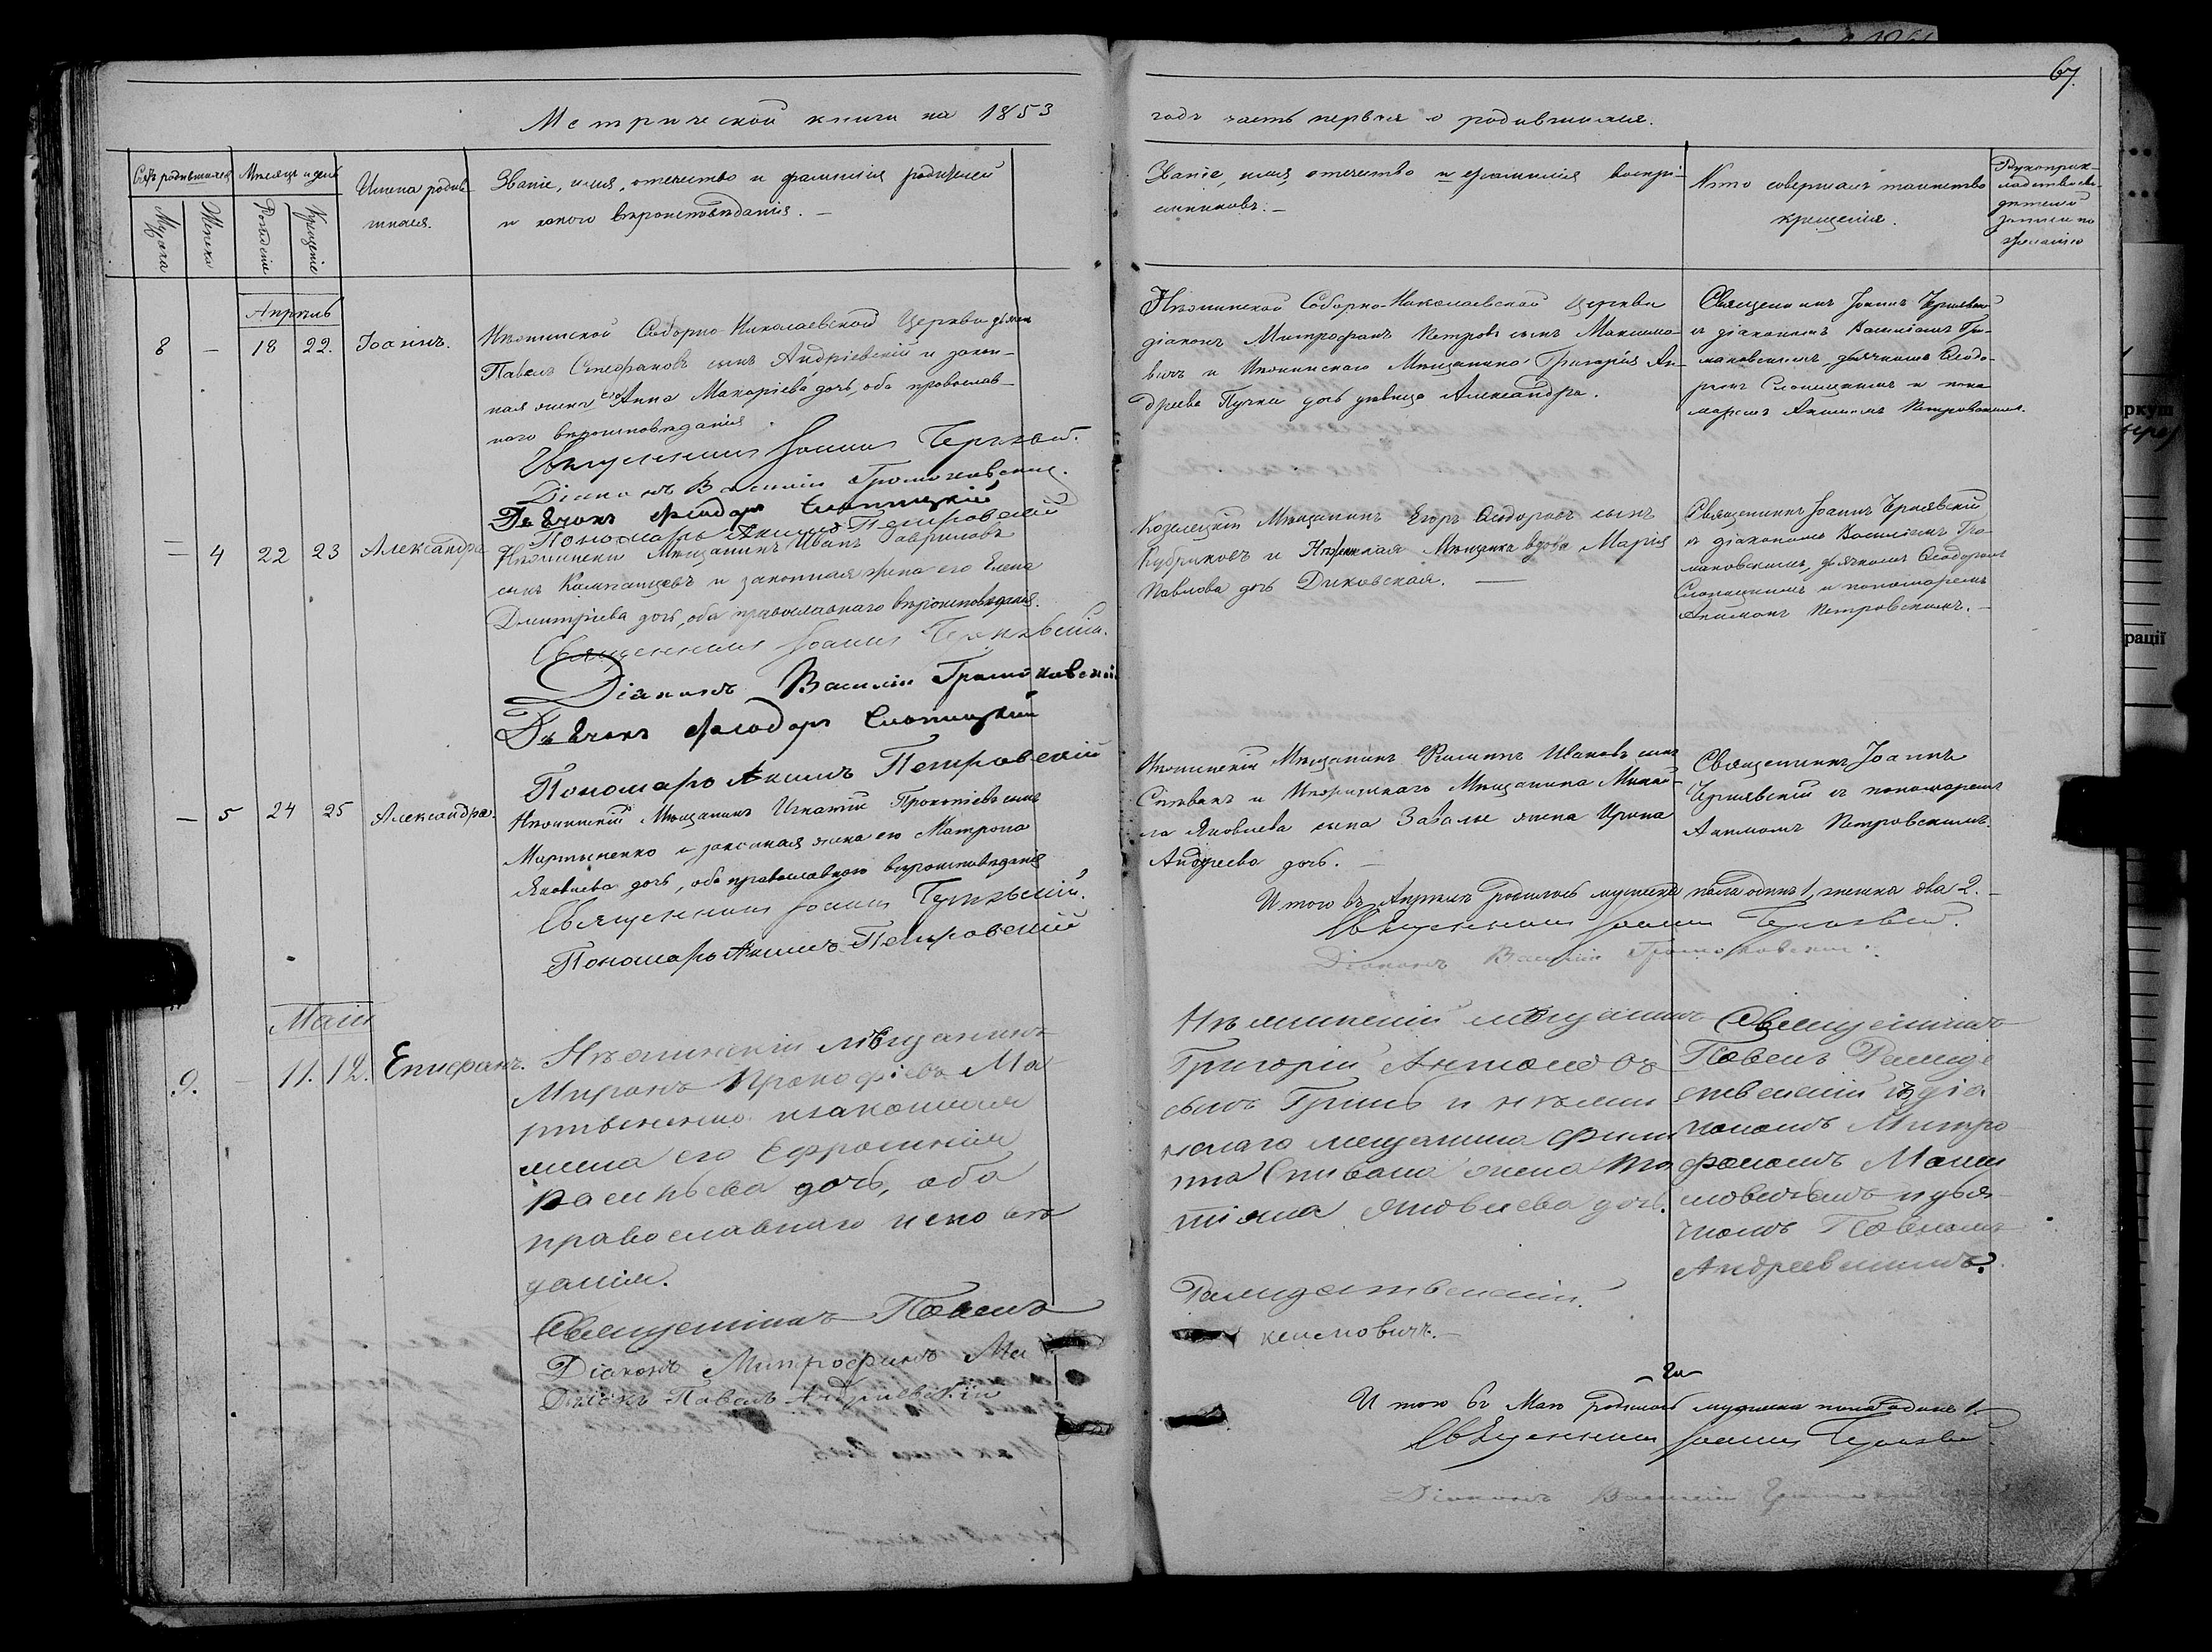 67.
Метрической книги на 1853
годъ часть первая о родившихся.
Счетъ родившихся
Мужска
Женска
Месяцъ и день
Рожденіе
Крещеніе
Имена родив-
шихся.
Званіе, имя, отечество и фамилія родителей
и какого вѣроисповѣданія. —
Званіе, имя, отечество и фамилія воспрі-
емниковъ. —
Кто совершалъ таинство
крещенія.
Рукоприк-
ладство сви-
дѣтелей
записи по
желанію
Апрѣль
8 — 18 22. Іоаннъ.
Нѣжинской Соборно Николаевской Церкви дьячекъ
Павелъ Стефановъ сынъ Андріевскій и закон-
ная жена его Анна Макаріева дочь, оба православ-
наго вѣроисповѣданія.
Священникъ Іоаннъ Чернявскій.
Діаконъ Василій Громаковскій.
Дьячокъ Феодоръ Слопицкій
Пономарь Акимъ Петровскій
Нѣжинской Соборно-Николаевской Церкви
діаконъ Митрофанъ Петровъ сынъ Максимо-
вичъ и Нѣжинскаго Мѣщанина Григорія Ан-
дреева Пучки дочь дѣвица Александра.
Священникъ Іоаннъ Чернявскій
съ діакономъ Василіемъ Гро-
маковскимъ, дьячкомъ Ѳеодо-
ромъ Слопицкимъ и поно-
маремъ Акимомъ Петровскимъ.
— 4 22 23 Александра
Нѣжинскій Мѣщанинъ Иванъ Гавриловъ
сынъ Компанцевъ и законная жена его Елена
Дмитріева дочь, оба православнаго вѣроисповѣданія.
Священникъ Іоаннъ Чернявскій.
Діаконъ Василій Громаковскій
Дьячокъ Феодоръ Слопицкій
Пономарь Акимъ Петровскій
Козелецкій Мѣщанинъ Егоръ Ѳеодоровъ сынъ
Кубраковъ и Нѣжинская Мѣщанка вдова Марія
Павлова дочь Диковская. —
Священникъ Іоаннъ Чернявскій
съ діакономъ Василіемъ Гро-
маковскимъ, дьячкомъ Ѳеодоромъ
Слопицкимъ и пономаремъ
Акимомъ Петровскимъ. —
— 5 24 25 Александра.
Нѣжинскій Мѣщанинъ Игнатій Прокопіевъ сынъ
Мартыненко и законная жена его Матрона
Яковлева дочь, оба православнаго вѣроисповѣданія
Священникъ Іоаннъ Чернявскій.
Пономарь Акимъ Петровскій
Нѣжинскій Мѣщанинъ Филипъ Ивановъ сынъ
Спѣвакъ и Нѣжинскаго Мѣщанина Михаи-
ла Яковлева сына Завалы жена Ирина
Андреева дочь. —
Священникъ Іоаннъ
Чернявскій съ пономаремъ
Акимомъ Петровскимъ.
Итого въ Апрѣлѣ родилось мужеска пола одинъ 1, женска два 2. —
Священникъ Іоаннъ Чернявскій.
Діаконъ Василій Громаковскій.
Маій
9. 11. 12. Епифанъ.
Нѣжинскій мѣщанинъ
Миронъ Прокофіевъ Ма-
ртыненко и законная
жена его Ефросинія
Васильева дочь, оба
православнаго исповѣ
данія.
Священникъ Павелъ
Рождественскій.
Діаконъ Митрофанъ Ма
ксимовичъ. —
Дьякъ Павелъ Андріевскій
Нѣжинскій мѣщанинъ
Григорій Антоновъ
сынъ Гришъ и нѣжин
скаго мещанина Фили
па Спивака жена Та
тіяна Яковлева дочь.
Священникъ
Павелъ Рожде
ственскій съ діа
кономъ Митро
фаномъ Макси
мовичемъ и дья
чкомъ Павломъ
Андреевскимъ.
Итого въ Маѣ родилось мужеска пола одинъ 1.
Священникъ Іоаннъ Чернявскій
Діаконъ Василій